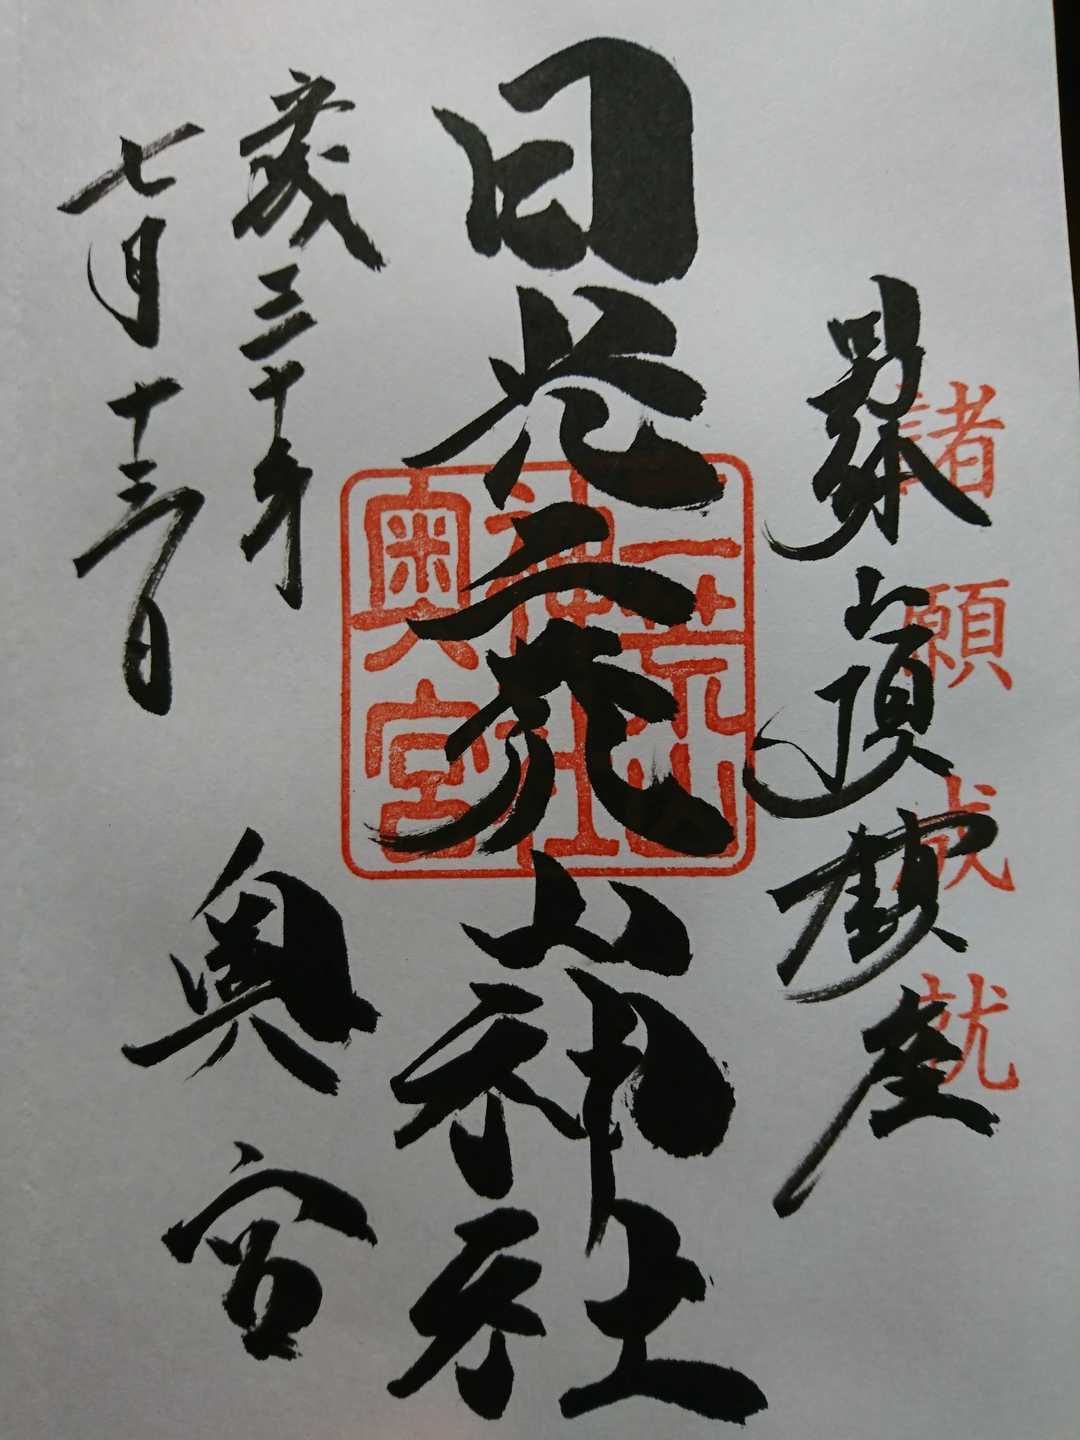 諸願成就
男躰山頂鎮座
日光二荒山神社
二荒山
神社
奥宮
奥宮
平成三十年
七月十三日